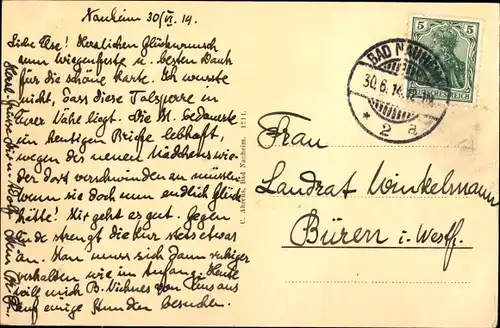 Nauheim 30/VI. 14.
Liebe Ilse! Herzlichen Glückwunsch
zum Wiegenfeste u. besten Dank
für die schöne Karte. Ich wusste
nicht, dass diese Talsperre in
Eurer Nähe liegt. Die M. bedauerte
im heutigen Briefe lebhaft,
wegen des neuen Mädchens wie-
der dort verschwinden zu müssen
wenn sie doch nun endlich Glück
hätte! Mir geht es gut. Gegen
Ende strengt die Kur stets etwas
an. Man muss sich dann ruhiger
verhalten wie im Anfang. Heute
will mich B. von aus
auf einige Stunden besuchen.
C. Ahrens, Bad Nauheim. 1214.
5 5
DEUTSCHES REICH
BAD NAUHEIM
30.6.14.
* 2 a
Frau
Landrat Winkelmann
Büren i. Westf.